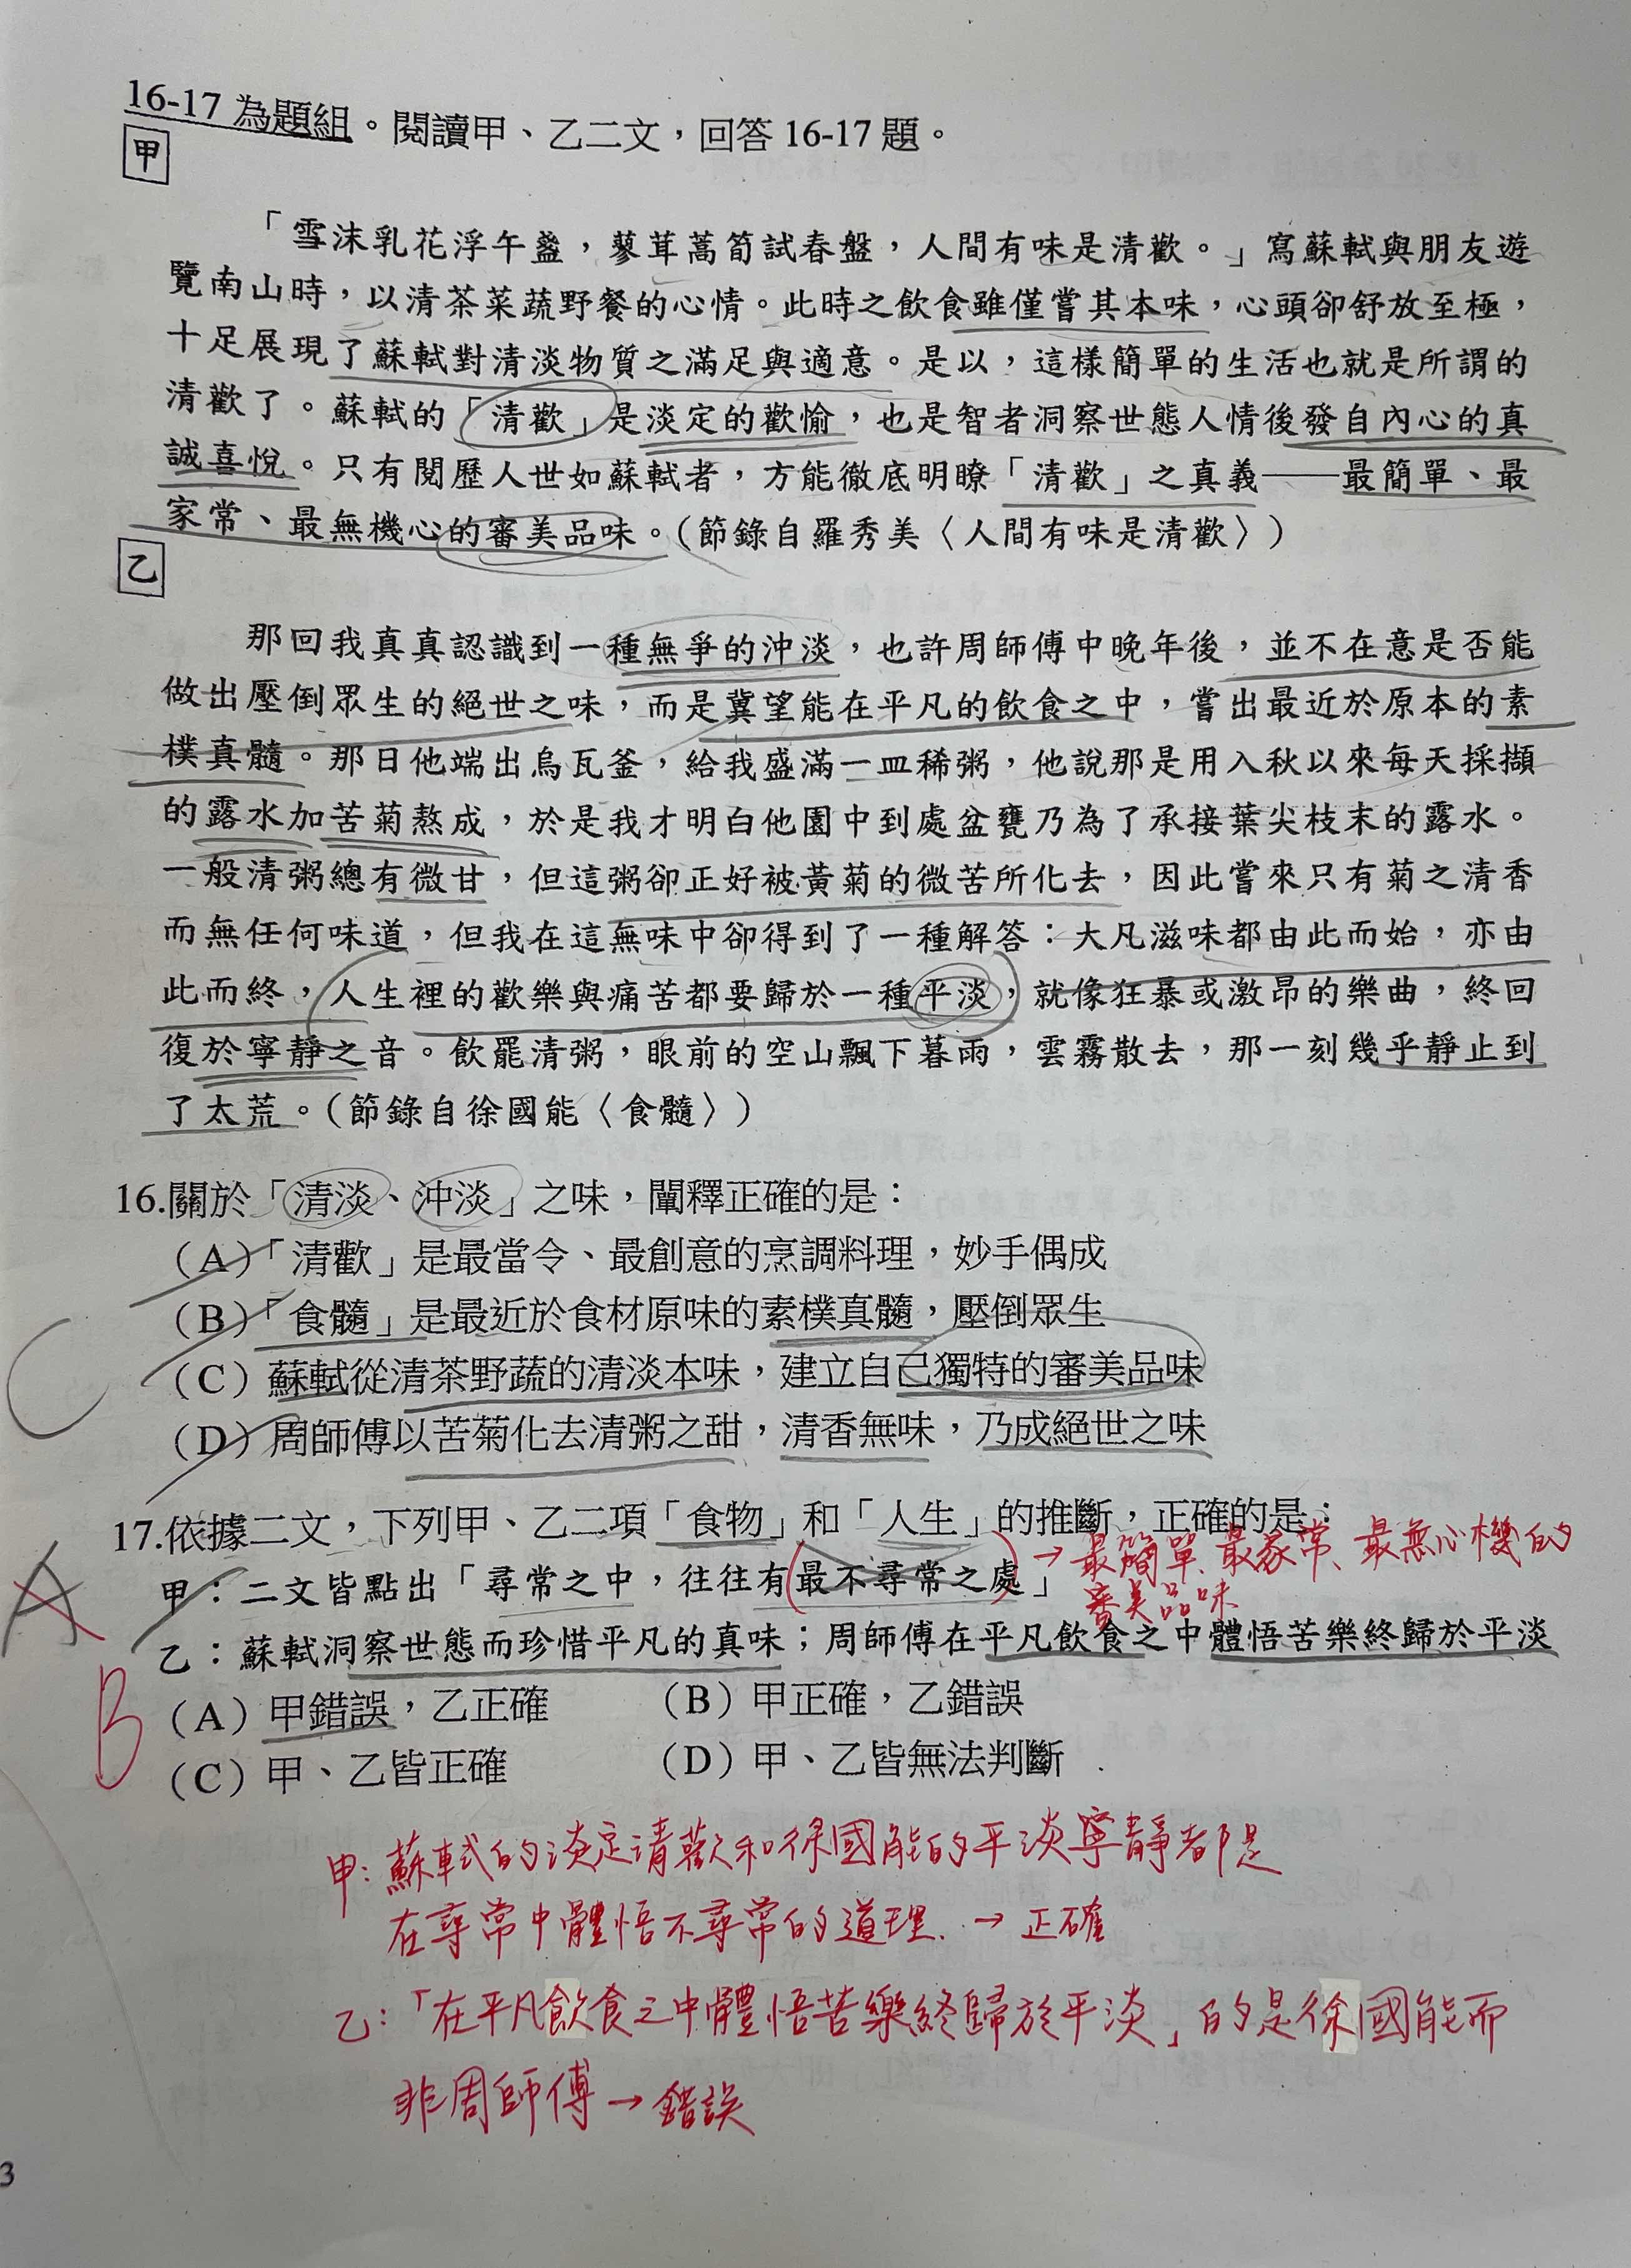 16-17 為題組。閱讀甲、乙二文，回答 16-17 題。
甲
「雪沫乳花浮午盞，蓼茸蒿筍試春盤，人間有味是清歡。」寫蘇軾與朋友遊
覽南山時，以清茶菜蔬野餐的心情。此時之飲食雖僅嘗其本味，心頭卻舒放至極，
十足展現了蘇軾對清淡物質之滿足與適意。是以，這樣簡單的生活也就是所謂的
清歡了。蘇軾的「清歡」是淡定的歡愉，也是智者洞察世態人情後發自內心的真
誠喜悅。只有閱歷人世如蘇軾者，方能徹底明瞭「清歡」之真義——最簡單、最
家常、最無機心的審美品味。（節錄自羅秀美〈人間有味是清歡〉）
乙
那回我真真認識到一種無爭的沖淡，也許周師傅中晚年後，並不在意是否能
做出壓倒眾生的絕世之味，而是冀望能在平凡的飲食之中，嘗出最近於原本的素
樸真髓。那日他端出烏瓦釜，給我盛滿一皿稀粥，他說那是用入秋以來每天採擷
的露水加苦菊熬成，於是我才明白他園中到處盆甕乃為了承接葉尖枝末的露水。
一般清粥總有微甘，但這粥卻正好被黃菊的微苦所化去，因此嘗來只有菊之清香
而無任何味道，但我在這無味中卻得到了一種解答：大凡滋味都由此而始，亦由
此而終，人生裡的歡樂與痛苦都要歸於一種平淡，就像狂暴或激昂的樂曲，終回
復於寧靜之音。飲罷清粥，眼前的空山飄下暮雨，雲霧散去，那一刻幾乎靜止到
了太荒。（節錄自徐國能〈食髓〉）
16.關於「清淡、沖淡」之味，闡釋正確的是：
（A）「清歡」是最當令、最創意的烹調料理，妙手偶成
（B）「食髓」是最近於食材原味的素樸真髓，壓倒眾生
C
（C）蘇軾從清茶野蔬的清淡本味，建立自己獨特的審美品味
（D）周師傅以苦菊化去清粥之甜，清香無味，乃成絕世之味
17.依據二文，下列甲、乙二項「食物」和「人生」的推斷，正確的是：
A
甲：二文皆點出「尋常之中，往往有最不尋常之處」
→最簡單、最家常、最無心機的
審美品味
乙：蘇軾洞察世態而珍惜平凡的真味；周師傅在平凡飲食之中體悟苦樂終歸於平淡
B
（A）甲錯誤，乙正確 （B）甲正確，乙錯誤
（C）甲、乙皆正確 （D）甲、乙皆無法判斷
甲：蘇軾的淡定清歡和徐國能的平淡寧靜都是
在尋常中體悟不尋常的道理.→正確
乙：「在平凡飲食之中體悟苦樂終歸於平淡」的是徐國能而
非周師傅→錯誤
3